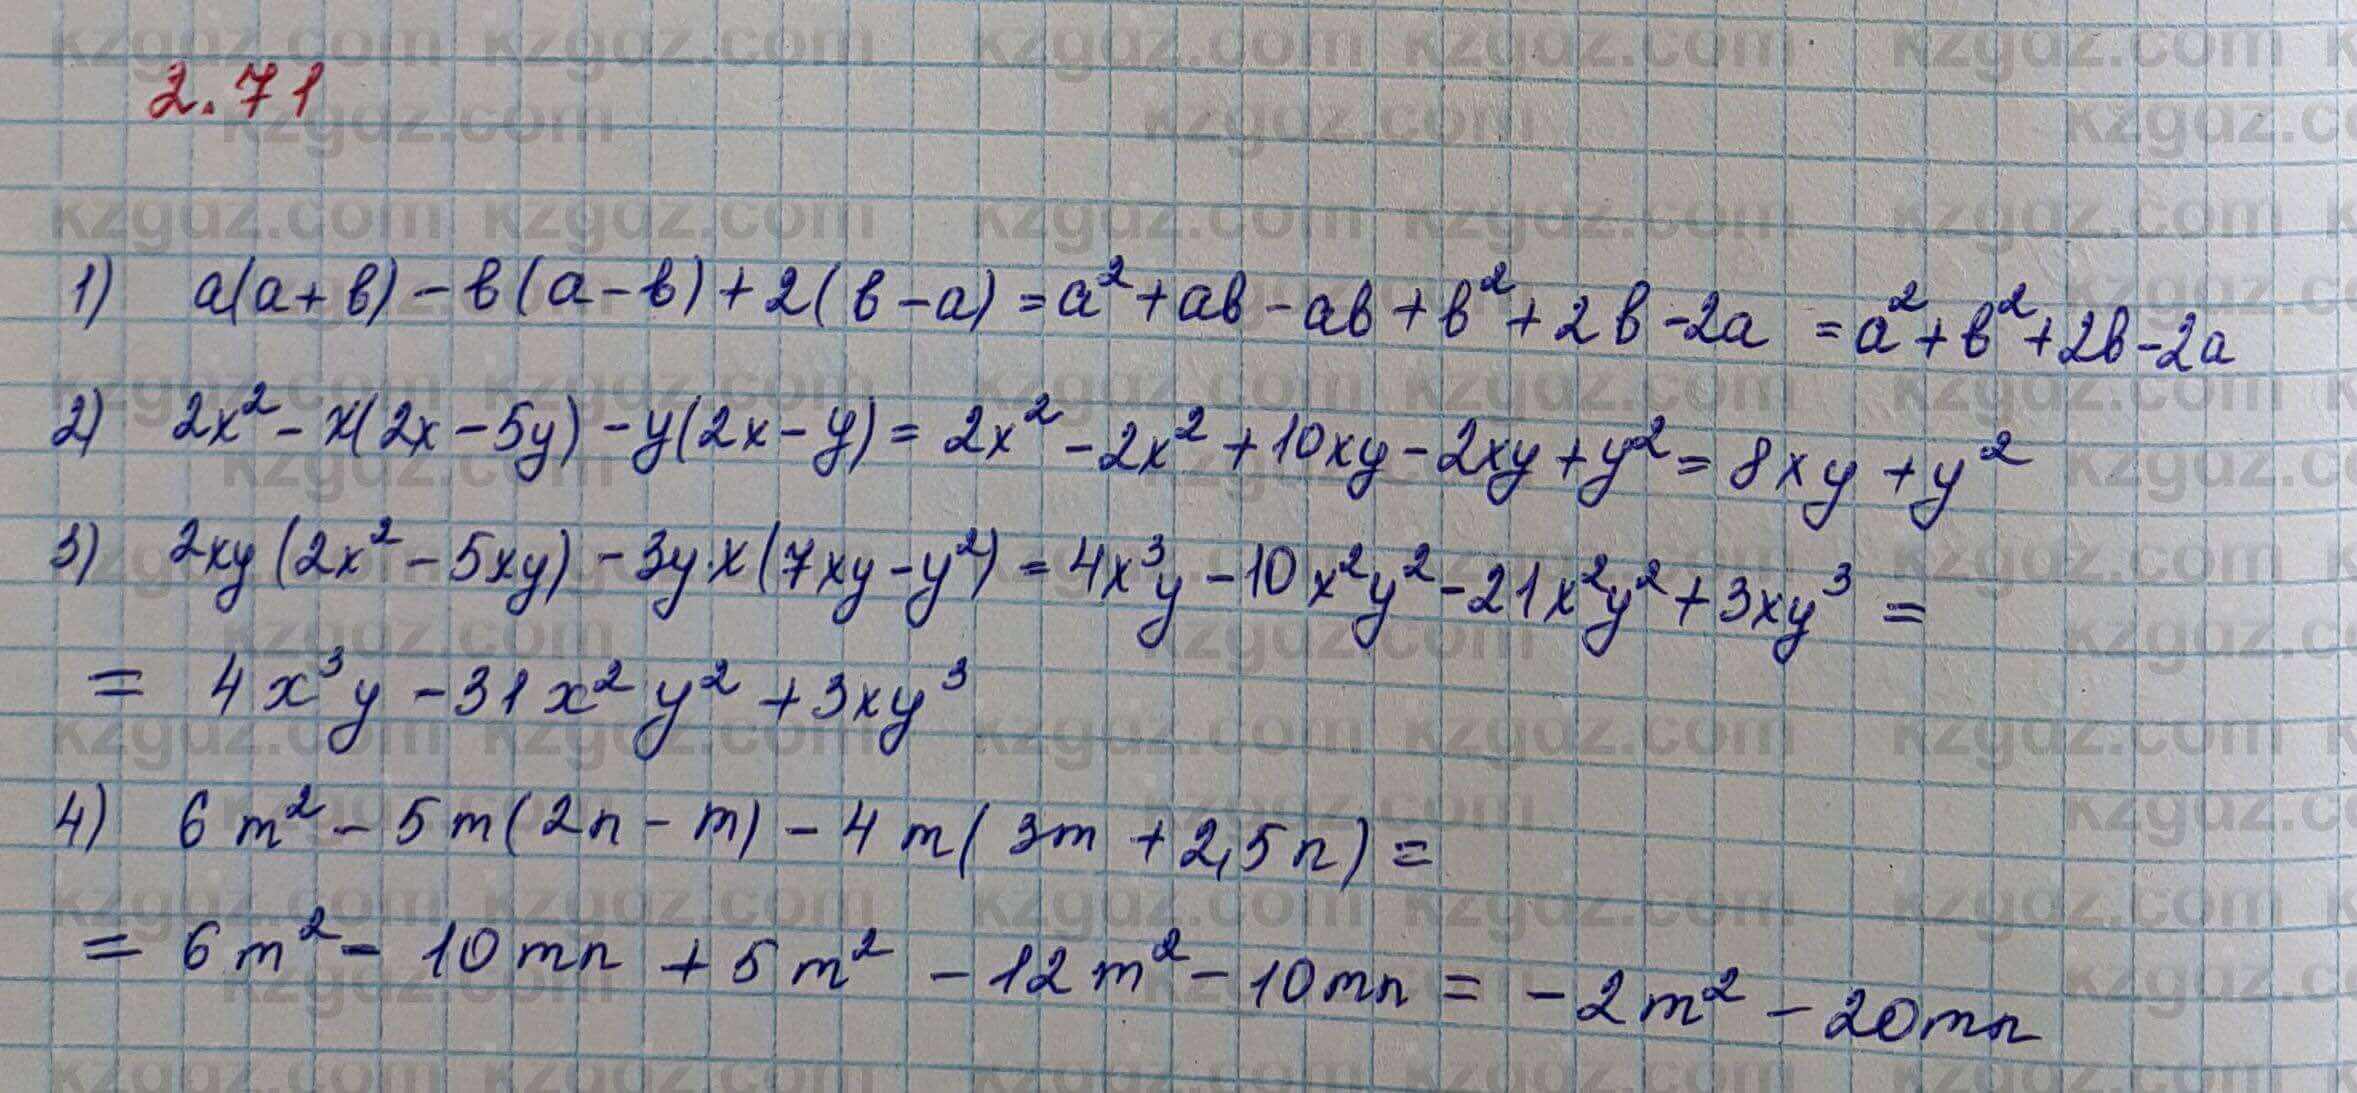 2.71
1) a(a+b)-b(a-b)+2(b-a)=a²+ab-ab+b²+2b-2a=a²+b²+2b-2a
2) 2x²-x(2x-5y)-y(2x-y)=2x²-2x²+10xy-2xy+y²=8xy+y²
3) 2xy(2x²-5xy)-3y·x(7xy-y²)=4x³y-10x²y²-21x²y²+3xy³=
=4x³y-31x²y²+3xy³
4) 6m²-5m(2n-m)-4m(3m+2,5n)=
=6m²-10mn+5m²-12m²-10mn=-2m²-20mn
kzgdz.com